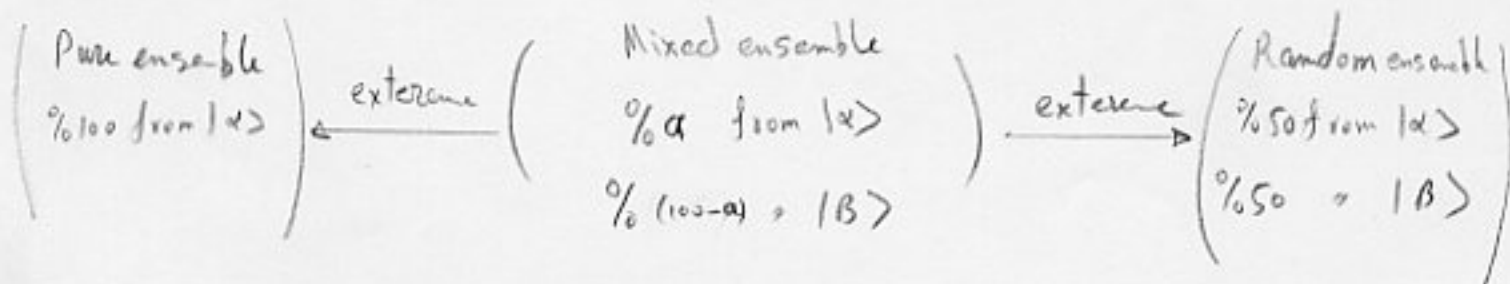 Pure ensemble
%100 from |α>
extereme
Mixed ensemble
%a from |α>
%(100-a) " |β>
extereme
Random ensemble
%50 from |α>
%50 " |β>